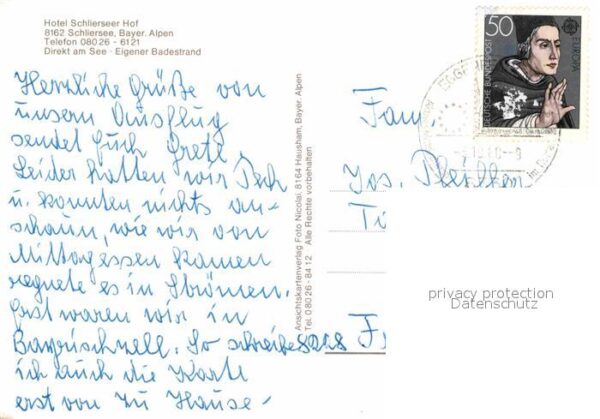 Hotel Schlierseer Hof
8162 Schliersee, Bayer. Alpen
Telefon 08026 - 6121
Direkt am See · Eigener Badestrand
Herzliche Grüße von
unserm Ausflug
sendet Euch Gretl.
Leider hatten wir Pech
u. konnten nichts an-
schaun, wie wir vom
Mittagessen kamen
regnete es in Strömen.
Erst waren wir in
Bayrischzell. So schreibe
ich auch die Karte
erst von zu Hause -
Ansichtskartenverlag Foto Nicolai, 8164 Hausham, Bayer. Alpen
Tel. 08026 - 8412 Alle Rechte vorbehalten
50
EUROPA
DEUTSCHE BUNDESPOST
Fam
Jos.
privacy protection
Datenschutz